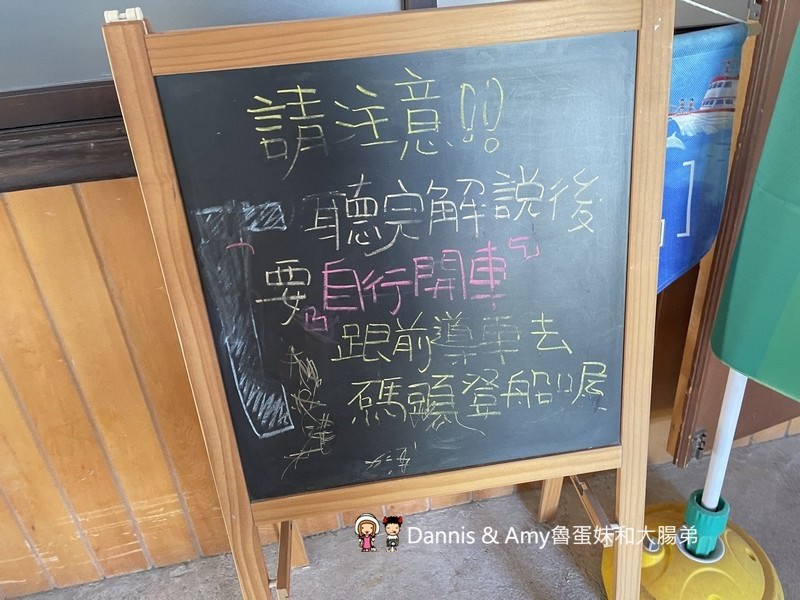 請注意!!
聽完解說後
要「自行開車」
跟前導車去
碼頭登船喔
Dannis & Amy魯蛋妹和大腸弟